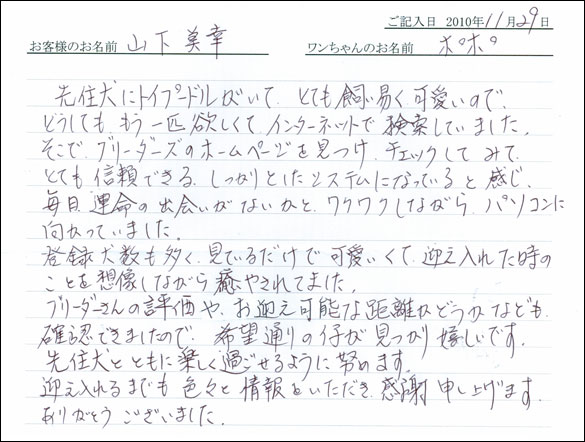 ご記入日 2010年11月29日
お客様のお名前 山下美幸 ワンちゃんのお名前 ポポ
先住犬にトイプードルがいて、とても飼い易く可愛いので、
どうしても もう一匹欲しくて、インターネットで検索していました。
そこで、ブリーダーズのホームページを見つけ、チェックしてみて、
とても信頼できる、しっかりとしたシステムになっていると感じ、
毎日、運命の出会いがないかと、ワクワクしながら、パソコンに
向かっていました。
登録犬数も多く、見ているだけで可愛いくて、迎え入れた時の
ことを想像しながら癒やされてました。
ブリーダーさんの評価や、お迎え可能な距離かどうかなども、
確認できましたので、希望通りの仔が見つかり嬉しいです。
先住犬とともに楽しく過ごせるように努めます。
迎え入れるまでも色々と情報をいただき、感謝申し上げます。
ありがとうございました。